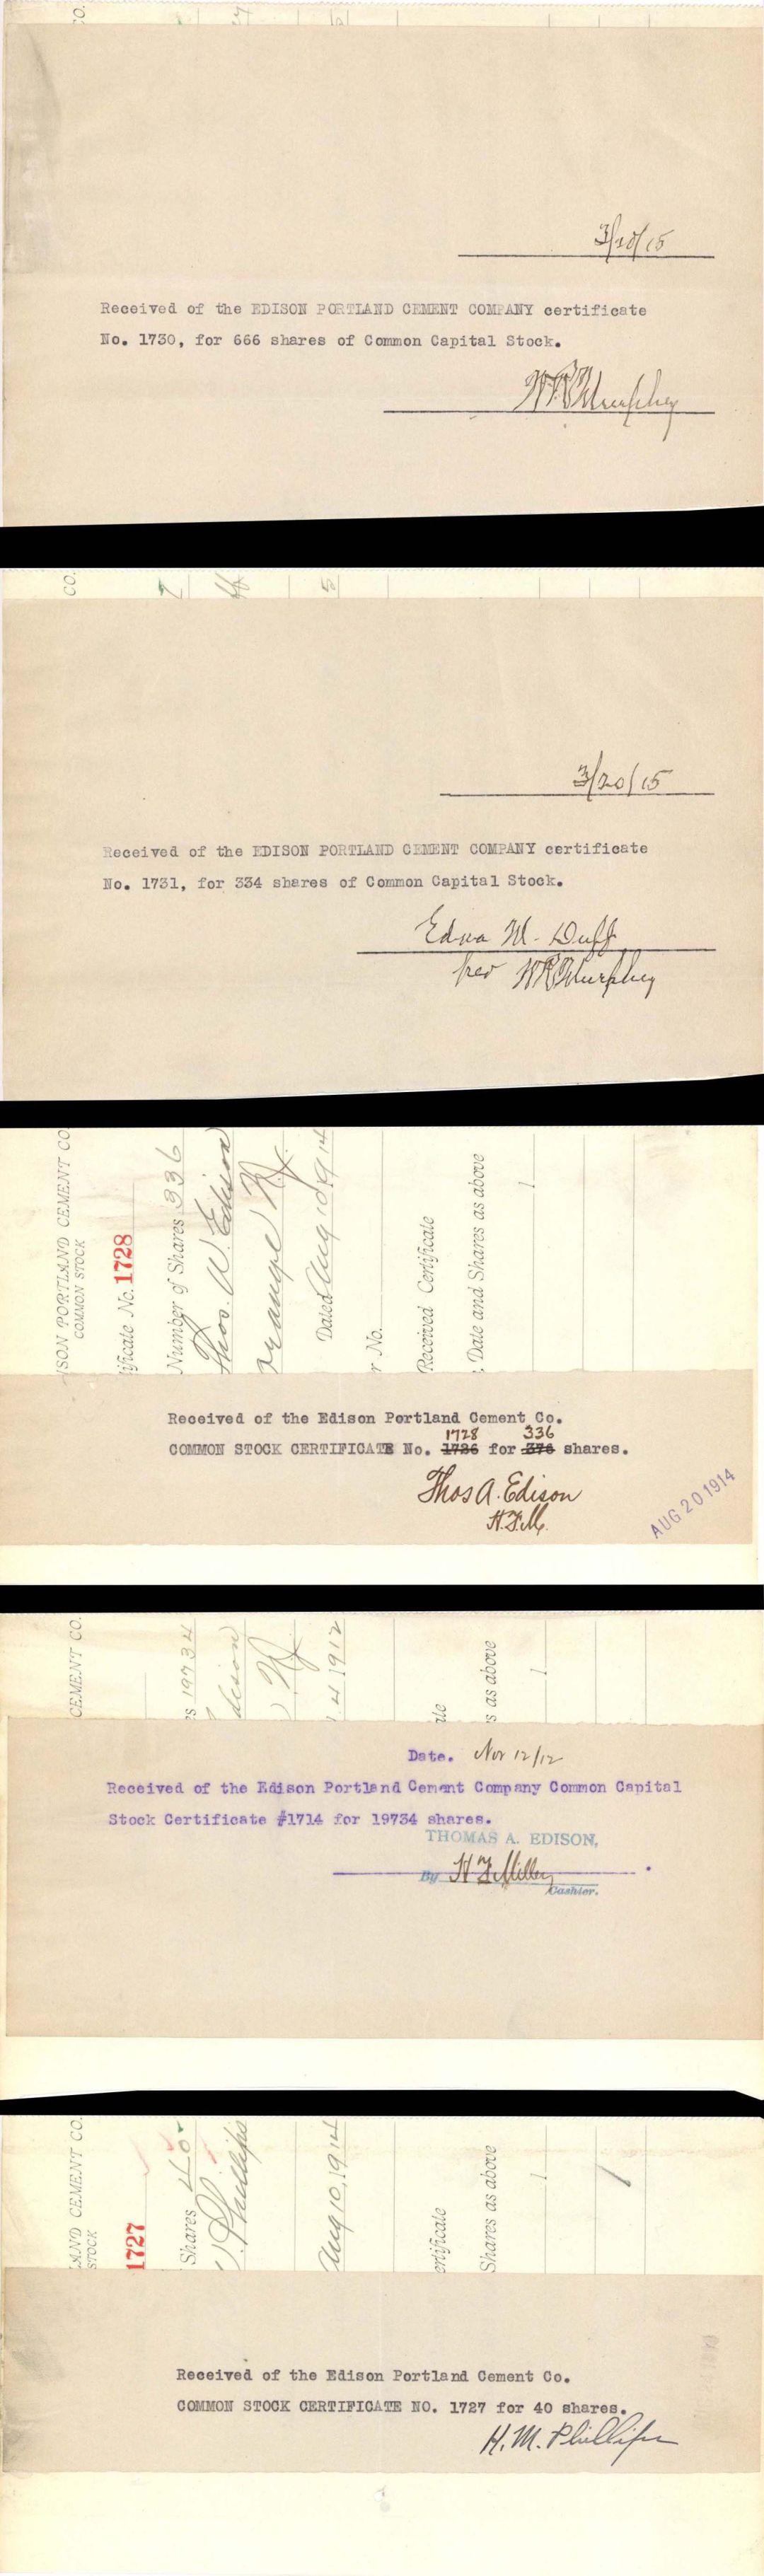 CO.
3/20/15
Received of the EDISON PORTLAND CEMENT COMPANY certificate
No. 1730, for 666 shares of Common Capital Stock.
W R Murphey
CO.
3/20/15
Received of the EDISON PORTLAND CEMENT COMPANY certificate
No. 1731, for 334 shares of Common Capital Stock.
Edna M. Duff
per W R Murphey
SON PORTLAND CEMENT CO
COMMON STOCK
ificate No. 1728
Number of Shares 336
Thos. A. Edison
Orange N.J.
Dated Aug 10 1914
r No.
Received Certificate
. Date and Shares as above
Received of the Edison Portland Cement Co.
1728 336
COMMON STOCK CERTIFICATE No. 1726 for 376 shares.
Thos A. Edison
H.F.M.
AUG 20 1914
CEMENT CO.
es 19734
dison
N.J.
4 1912
ate
s as above
Date. Nov 12/12
Received of the Edison Portland Cement Company Common Capital
Stock Certificate #1714 for 19734 shares.
THOMAS A. EDISON,
By H F Miller
Cashier.
AND CEMENT CO.
STOCK
1727
Shares 40
Phillips
Aug 10, 1914
ertificate
Shares as above
Received of the Edison Portland Cement Co.
COMMON STOCK CERTIFICATE NO. 1727 for 40 shares.
H. M. Phillips